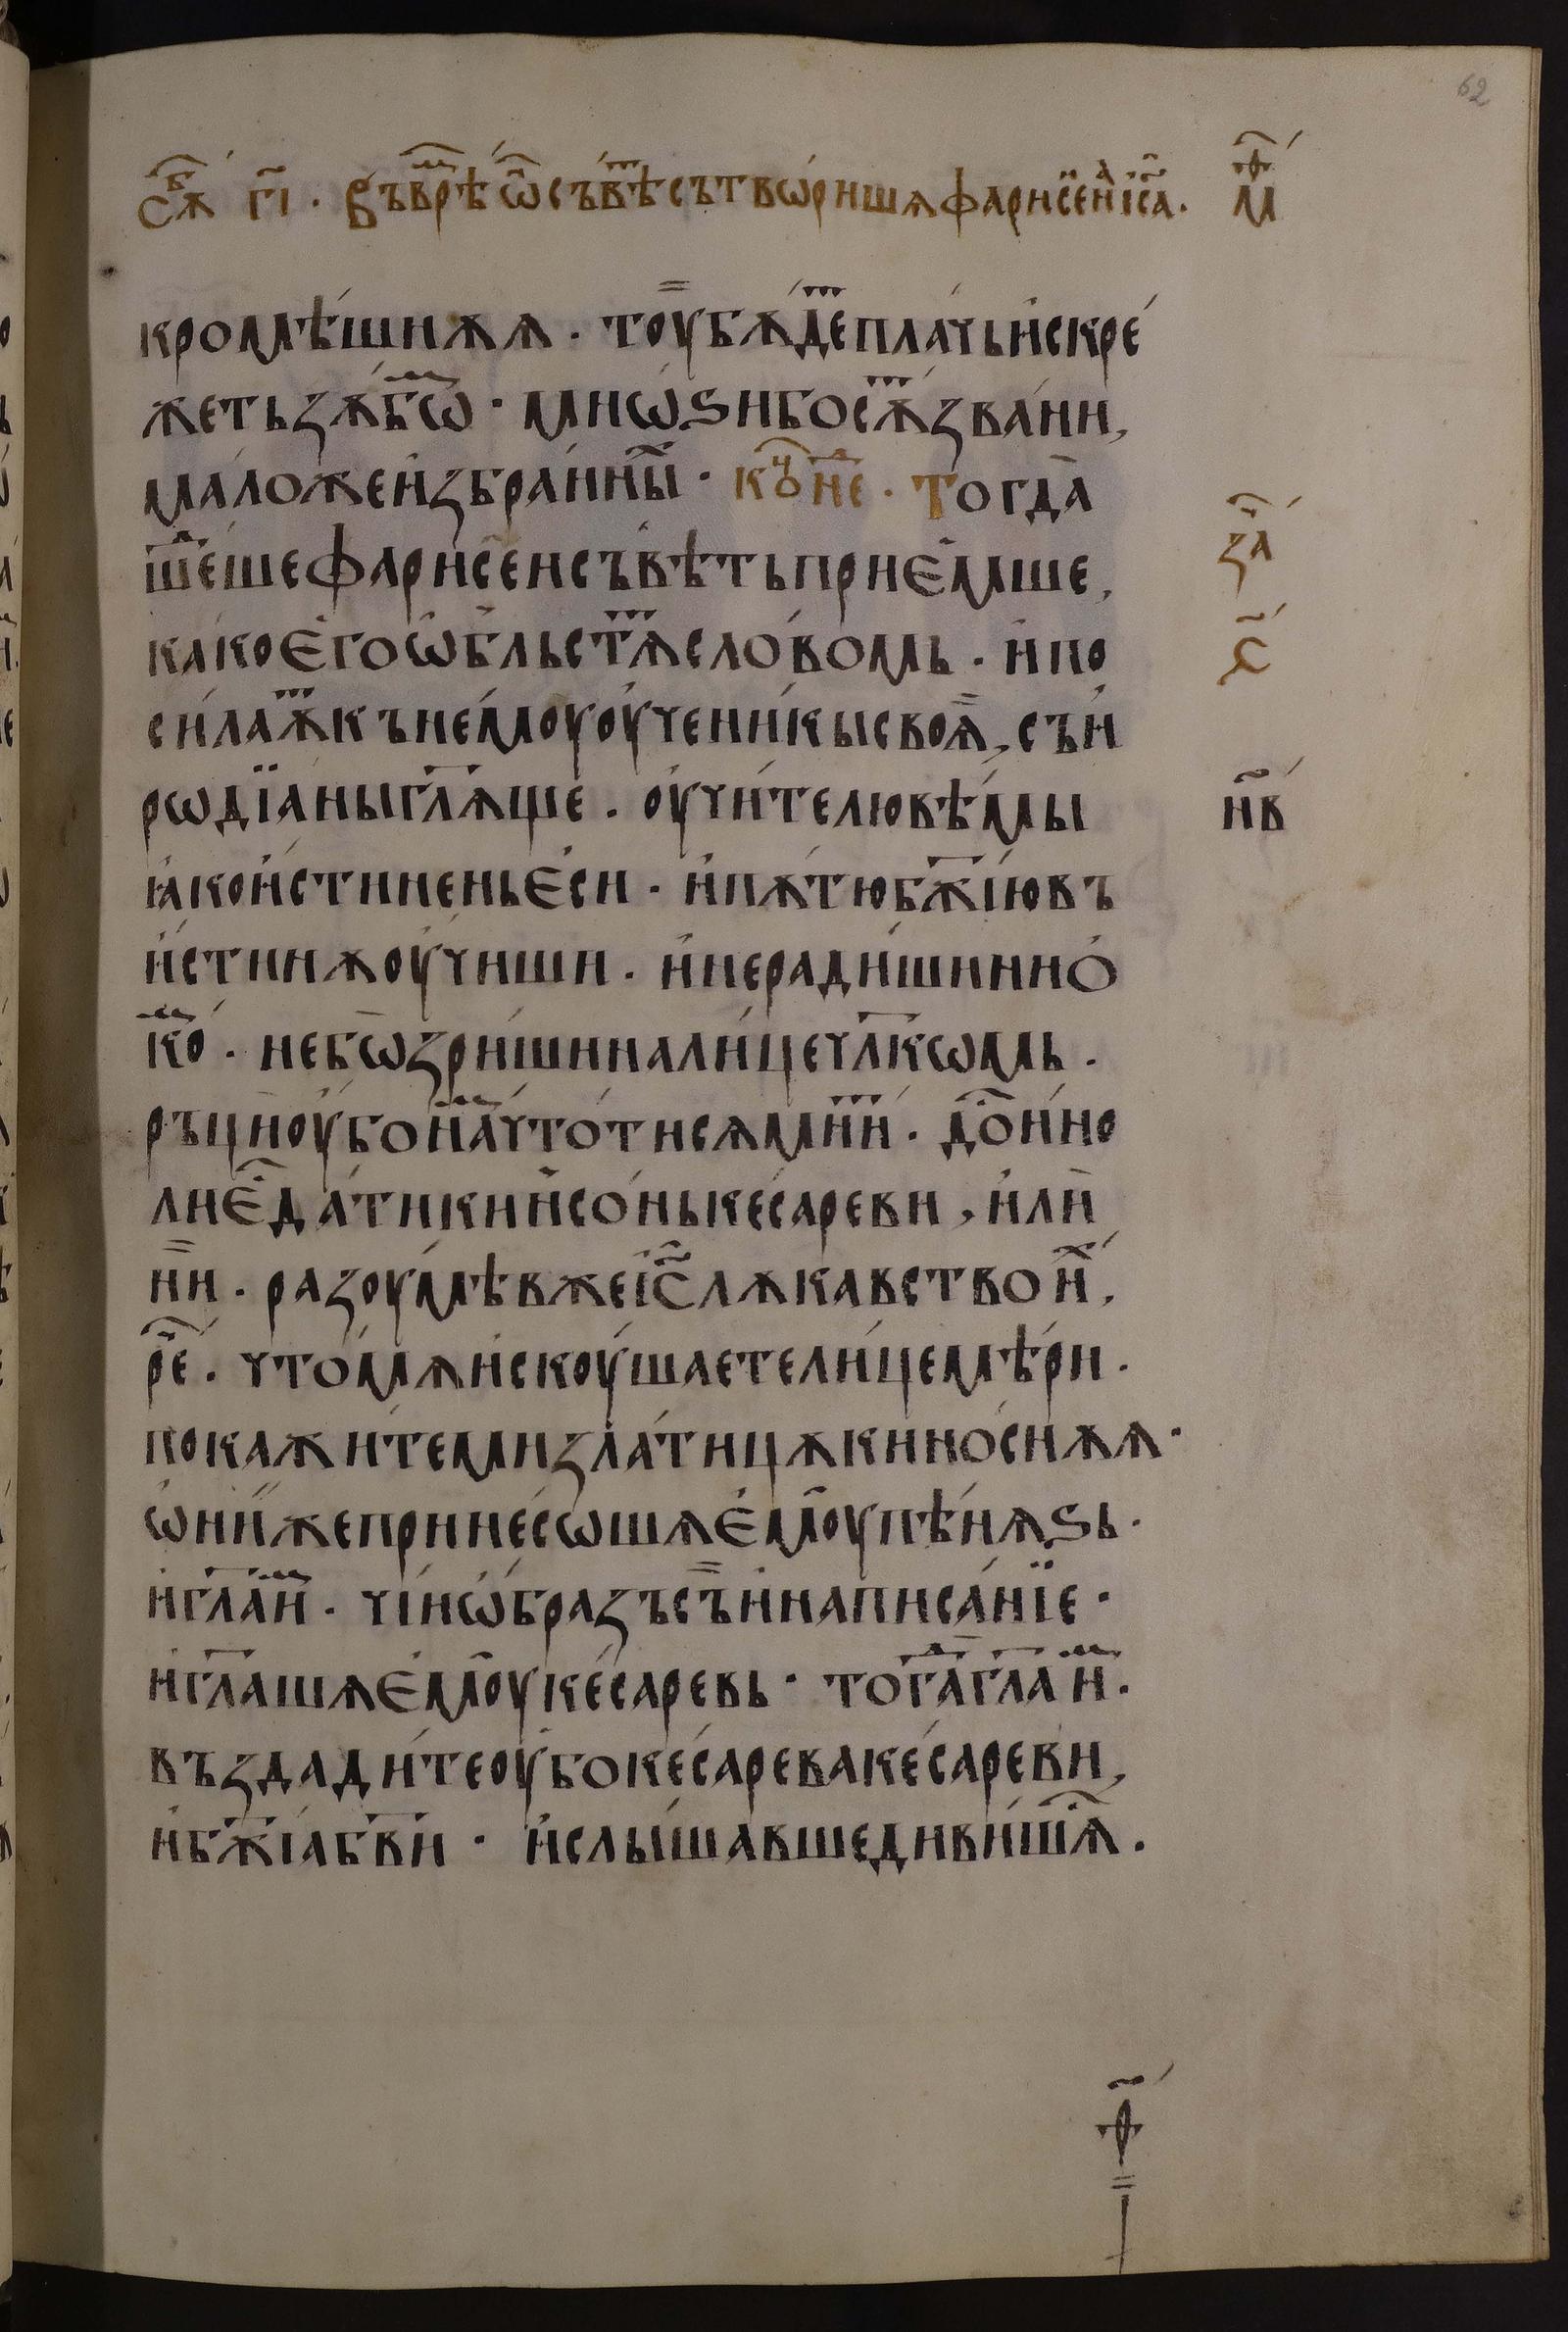 62
сѫⷠ҇ г҃і · въⷨврѣ ѿ съвⷮѣ сътвѡ́ришѧ фарисе́иⷣ і҆с҃а · мⷴ҇
кромѣ́шнѫѧ · тоу бѫ́деⷮ пла́чь и҆ скре́
жеть зѫбѡⷨ · мнѡ́ѕи бо сѫⷮ зва́ни,
ма́ло же и҆збра́нныⷯ · коⷰ҇не · Тогда̀
заⷱ҇
шеⷣше фарисе́и съвѣ́ть прие́мше,
како е҆го ѡ҆бльстѧⷮ сло́вомь · и҆ по
с҃
сила́ѫⷮ къ немоу оу҆ченикы своѧ̀, съ и҆
рѡдїаны гл҃ѧще · оу҆чи́телю вѣ́мы
н҃в
ꙗ҆ко и҆́стинень е҆си · и҆ пѫ́тю бж҃і́ю въ
и҆́стинѫ оу҆́чиши · и҆ неради́ши ни ѻ҆
коⷨ · не бо ѡзри́ши на ли́це чл҃кѡмь ·
ръцѝ оу҆́бо наⷨ что́ ти сѧ мниⷮ · до́ⷭ҇ино
ли е҆ⷭ҇ да́ти кинсо́нь ке́сареви, и҆лѝ
нѝ · разоумѣ́в же і҆с҃ лѫкавство иⷯ,
реⷱ҇ · что́ мѧ и҆скоу́шаете лицемѣ́ри ·
покажи́те ми зла́тицѫ кинѻ́снѫѧ ·
ѡ҆ни́ же принесѡшѧ е҆моу пѣ́нѧѕь ·
и҆ гл҃а иⷨ · чі́и ѡ҆́бразъ съ̀ и҆ написа́нїе ·
и҆ гл҃ашѧ е҆моу ке́саревь · тогⷣа гл҃а иⷨ ·
въздади́те оу҆бо ке́сарева ке́сареви,
и҆ бж҃і́а бв҃и · и҆ слы́шавше диви́шѧⷭ҇ ·